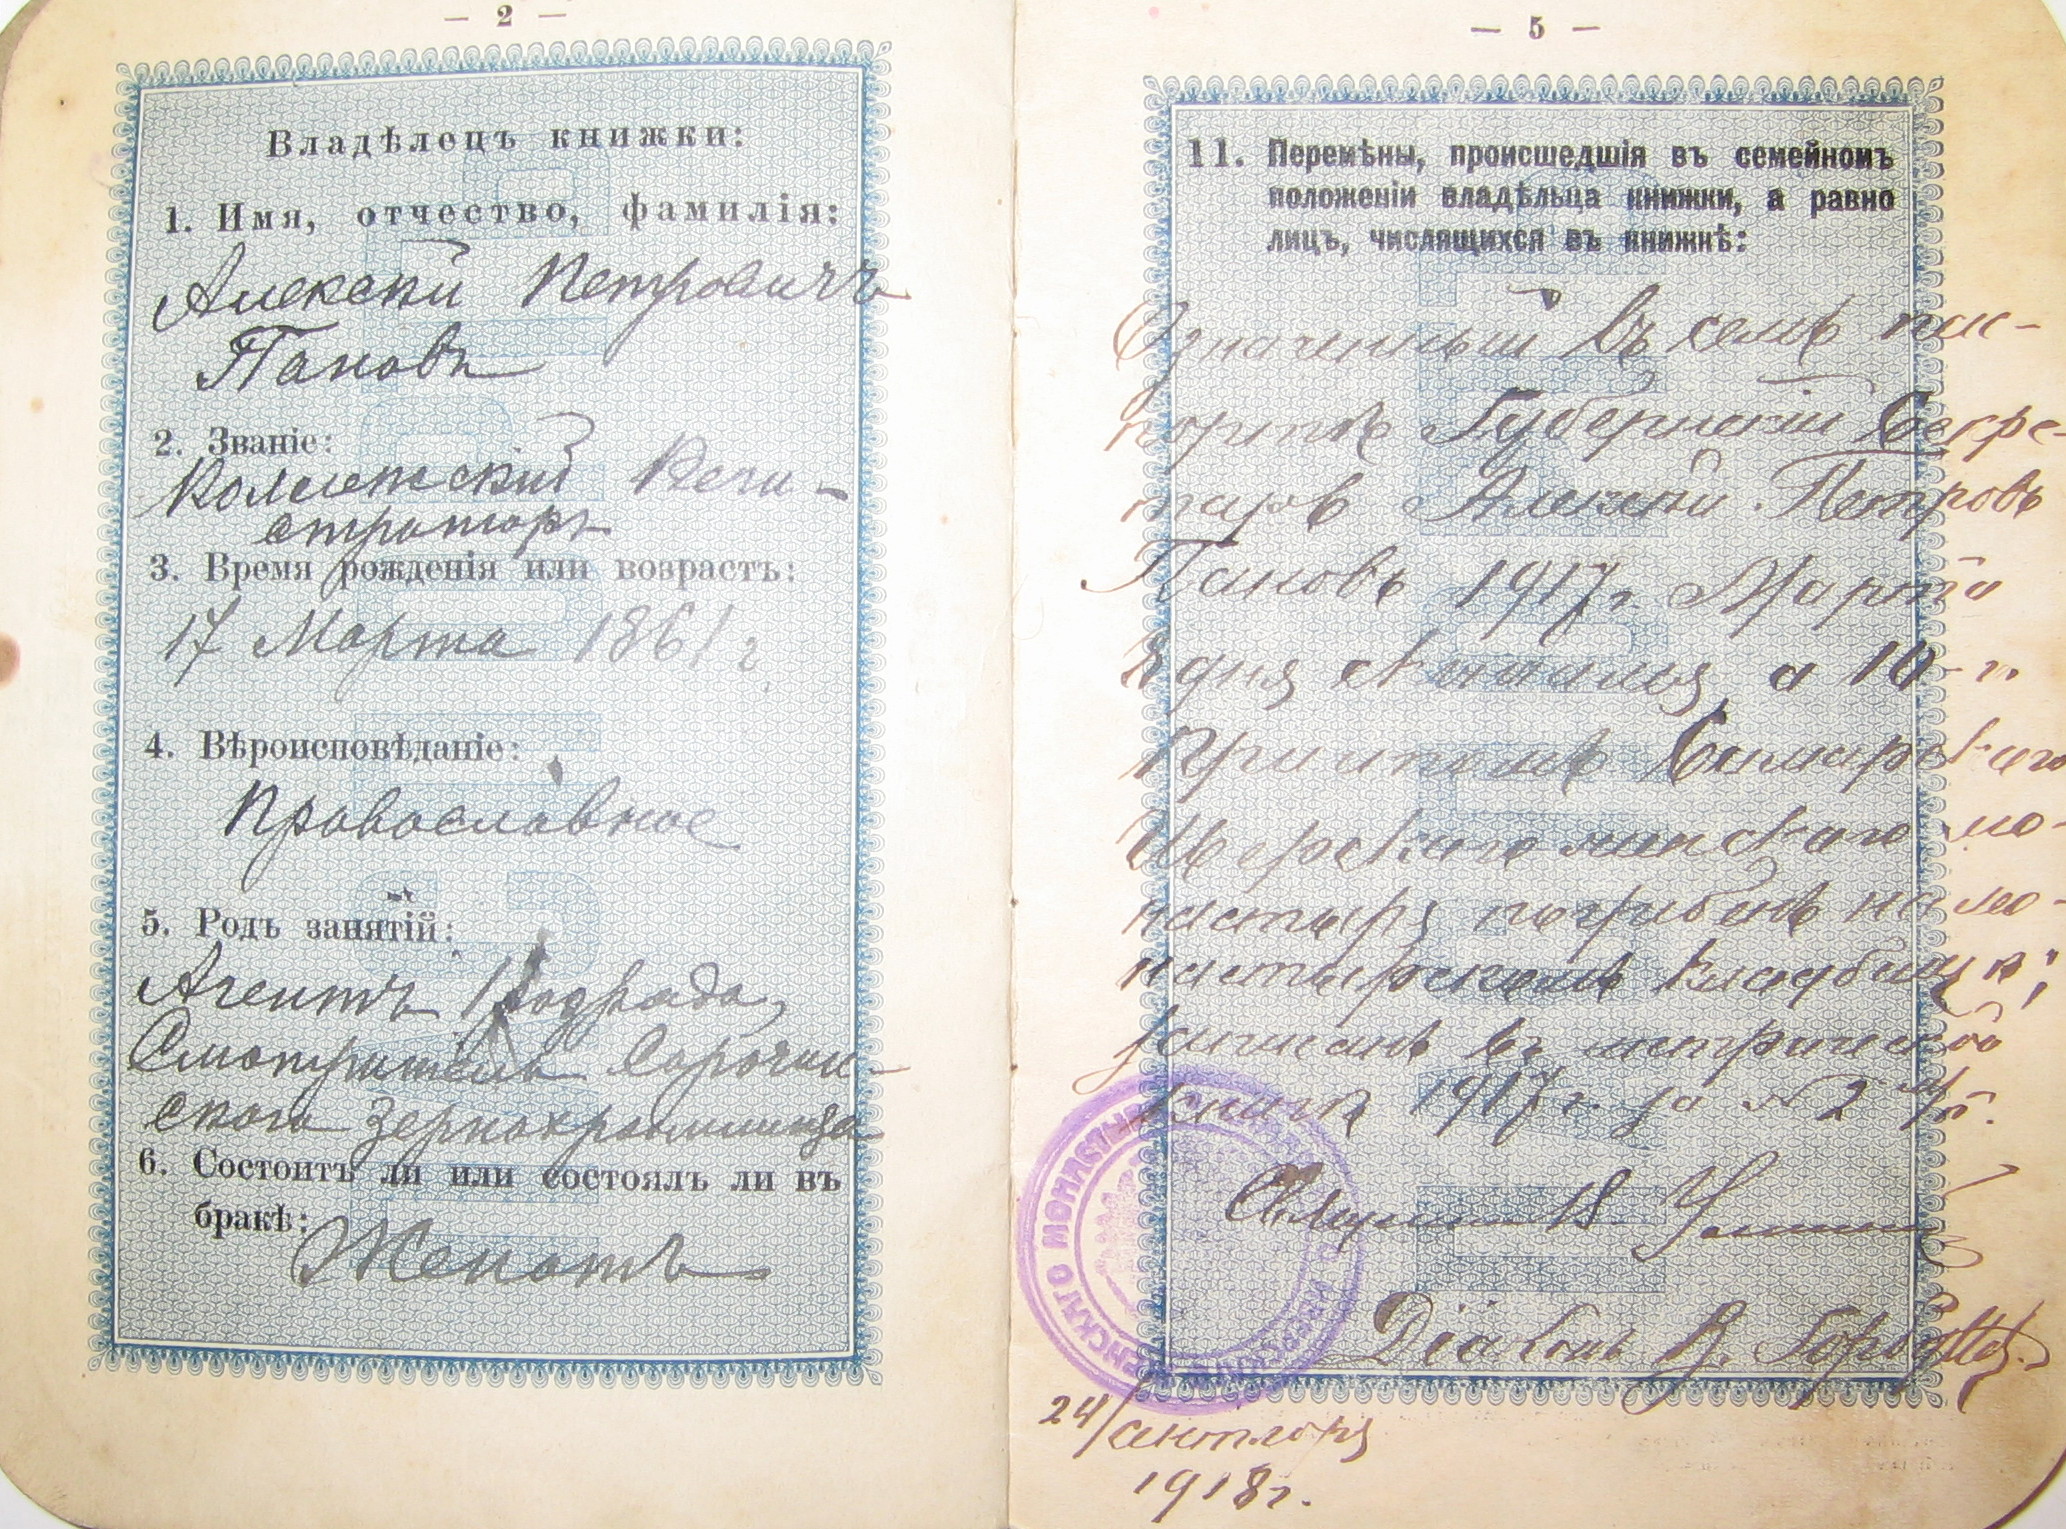 — 2 —
Владѣлецъ книжки:
1. Имя, отчество, фамилія:
Алексѣй Петровичъ
Пановъ
2. Званіе:
Коллежскій Реги-
страторъ
3. Время рожденія или возрастъ:
17 Марта 1861 г.
4. Вѣроисповѣданіе:
Православное
5. Родъ занятій:
Агентъ
Смотритель Сорочин-
скаго Зернохранилища
6. Состоитъ ли или состоялъ ли въ
бракѣ:
Женатъ
— 5 —
11. Перемѣны, происшедшія въ семейномъ
положеніи владѣльца книжки, а равно
лицъ, числящихся въ книжкѣ:
Означенный въ семъ пас-
портѣ Губернскій Секре-
тарь Алексѣй Петровъ
Пановъ 1917 г. Марта
8 дня скончался, а 10-го
причтомъ Самарскаго
Иверскаго женскаго мо-
настыря погребенъ на мо-
настырскомъ кладбищѣ;
записанъ въ метрической
книгѣ 1917 г. за № 2
Священникъ
Діаконъ В.
24/сентября
1918 г.